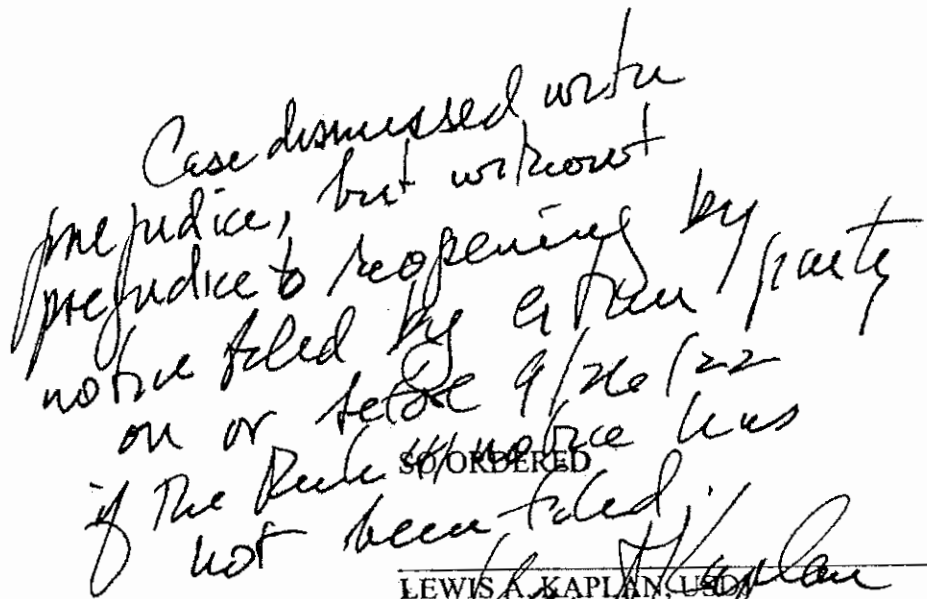 Case dismissed with
prejudice, but without
prejudice to reopening by
notice filed by either party
on or before 9/26/22
if the Rule 41 notice has
not been filed.
SO ORDERED
LEWIS A. KAPLAN, USDJ